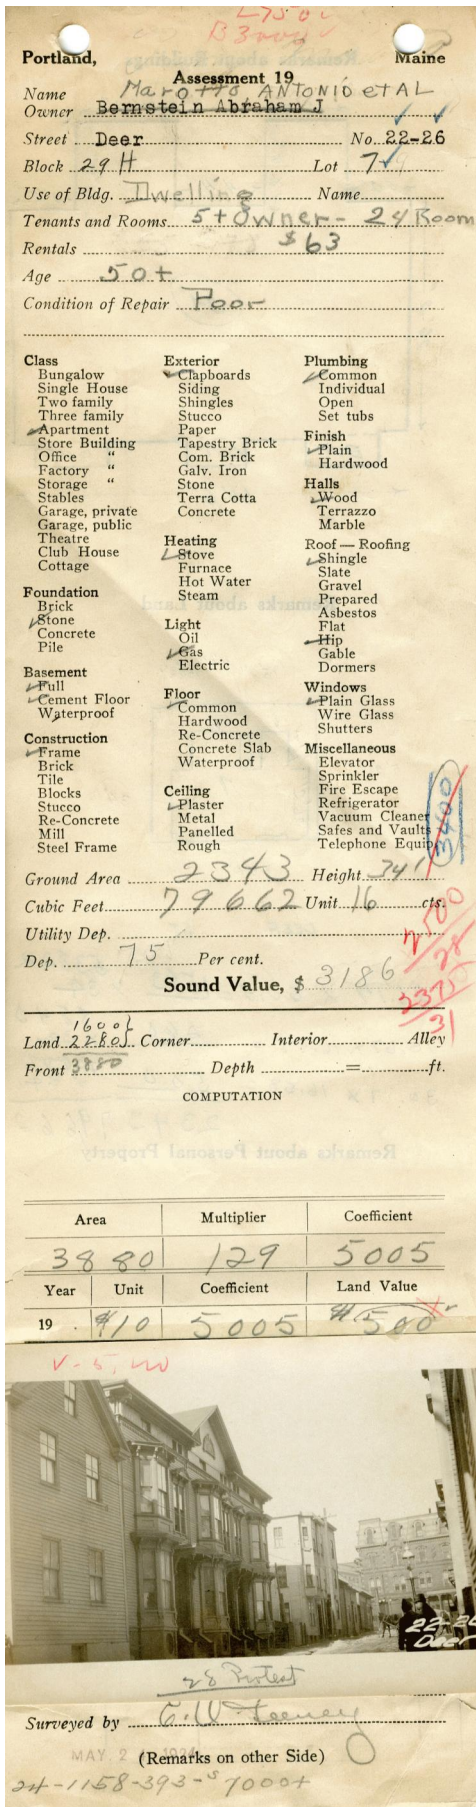 L 750
B 3000
Portland, Maine
Assessment 19
Name Marotto, ANTONIO et AL
Owner Bernstein Abraham J
Street Deer No. 22-26
Block 29 H Lot 7
Use of Bldg. Dwelling Name
Tenants and Rooms 5 + Owner - 24 Room
Rentals $63
Age 50+
Condition of Repair Poor
Class
Bungalow
Single House
Two family
Three family
✓Apartment
Store Building
Office "
Factory "
Storage "
Stables
Garage, private
Garage, public
Theatre
Club House
Cottage
Foundation
Brick
✓Stone
Concrete
Pile
Basement
✓Full
✓Cement Floor
Waterproof
Construction
✓Frame
Brick
Tile
Blocks
Stucco
Re-Concrete
Mill
Steel Frame
Exterior
✓Clapboards
Siding
Shingles
Stucco
Paper
Tapestry Brick
Com. Brick
Galv. Iron
Stone
Terra Cotta
Concrete
Heating
✓Stove
Furnace
Hot Water
Steam
Light
Oil
✓Gas
Electric
Floor
✓Common
Hardwood
Re-Concrete
Concrete Slab
Waterproof
Ceiling
✓Plaster
Metal
Panelled
Rough
Plumbing
✓Common
Individual
Open
Set tubs
Finish
✓Plain
Hardwood
Halls
✓Wood
Terrazzo
Marble
Roof — Roofing
✓Shingle
Slate
Gravel
Prepared
Asbestos
Flat
✓Hip
Gable
Dormers
Windows
✓Plain Glass
Wire Glass
Shutters
Miscellaneous
Elevator
Sprinkler
Fire Escape
Refrigerator
Vacuum Cleaner
Safes and Vaults
Telephone Equip.
3400
Ground Area 2343 Height 34'
Cubic Feet 79662 Unit 16 cts.
Utility Dep.
2500
28
Dep. 75 Per cent.
Sound Value, $ 3186
2375
31
1600
Land 2280 Corner Interior Alley
Front 3880 Depth = ft.
COMPUTATION
Remarks about Personal Property
Area Multiplier Coefficient
3880 129 5005
Year Unit Coefficient Land Value
19 $10 5005 $500
V-5,
22-26
Deer
28 Protest
Surveyed by C.W. Feeney
MAY 2
(Remarks on other Side)
24-1158-393-S 7000+